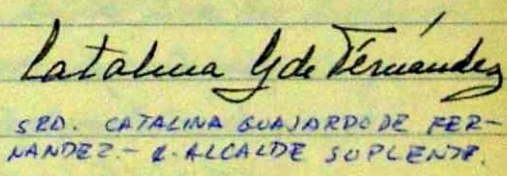 Catalina G de Fernández
SRA. CATALINA GUAJARDO DE FER-
NANDEZ.- C. ALCALDE SUPLENTE.